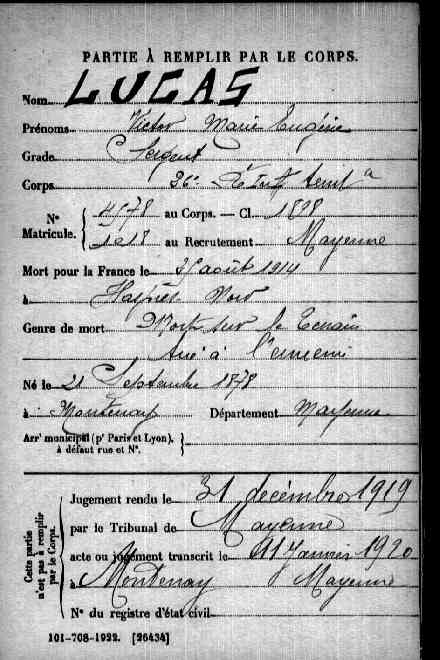 PARTIE À REMPLIR PAR LE CORPS.
Nom LUCAS
Prénoms Victor Marie Eugène
Grade Sergent
Corps 26e Rt Inf territ a
N° Matricule. { 4578 au Corps. — Cl. 1898
1218 au Recrutement Mayenne
Mort pour la France le 25 août 1914
à Haspres Nord
Genre de mort Mort sur le Terrain
Tué à l'ennemi
Né le 21 Septembre 1878
à Montenay Département Mayenne
Arr' municipal (p' Paris et Lyon), à défaut rue et N°. }
Cette partie n'est pas à remplir par le Corps.
Jugement rendu le 31 décembre 1919
par le Tribunal de Mayenne
acte ou jugement transcrit le 11 Janvier 1920
à Montenay Mayenne
N° du registre d'état civil
101-708-1922. [26434]